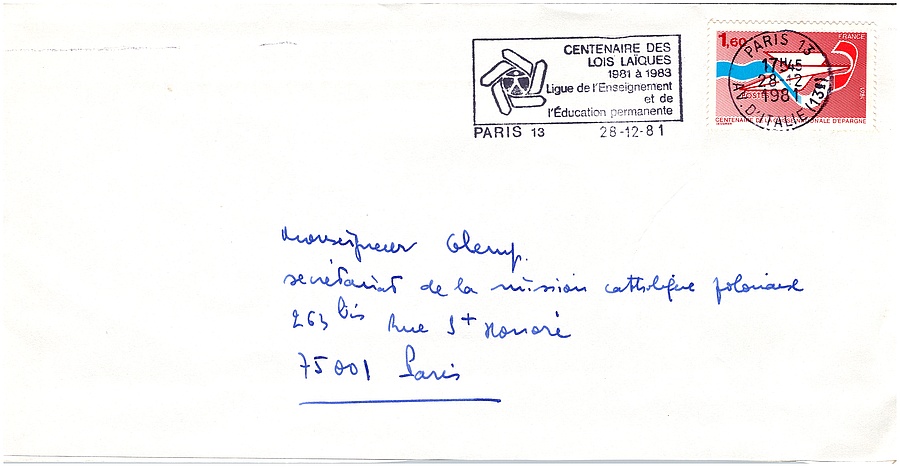 CENTENAIRE DES
LOIS LAÏQUES
1981 à 1983
Ligue de l'Enseignement
et de
l'Éducation permanente
PARIS 13 28-12-81
1,60
FRANCE
POSTES
CENTENAIRE DE LA NALE D'ÉPARGNE
PARIS 13
17H45
28-12
1981
AV. D'ITALIE (13E)
Monseigneur
secrétariat de la mission catholique polonaise
263 bis Rue St Honoré
75001 Paris